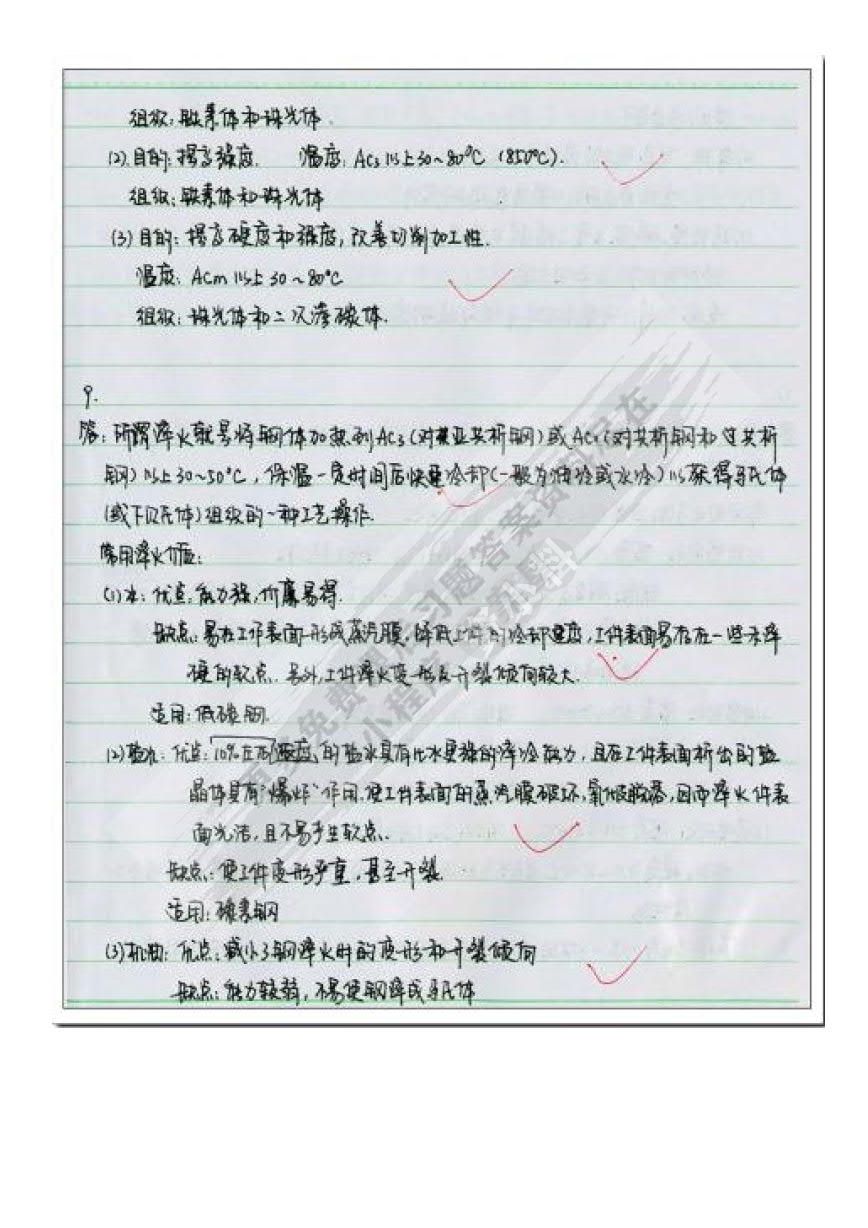 组织：铁素体和珠光体.
(2).目的：提高强度. 温度：Ac₃以上30~80℃ (850℃).
组织：铁素体和珠光体
(3) 目的：提高硬度和强度，改善切削加工性.
温度：Acm以上 30~80℃
组织：珠光体和二次渗碳体.
9.
答：所谓淬火就是将钢件加热到Ac₃(对亚共析钢)或Ac₁(对共析钢和过共析
钢)以上30~50℃，保温一定时间后快速冷却(一般为油冷或水冷)以获得马氏体
(或下贝氏体)组织的一种工艺操作.
常用淬火介质：
(1)水：优点：能力强，价廉易得.
缺点：易在工件表面形成蒸汽膜，降低工件的冷却速度，工件表面易存在一些未淬
硬的软点. 另外，工件淬火变形及开裂倾向较大.
适用：低碳钢.
(2)盐水：优点：10%左右的盐水具有比水更强的淬冷能力，且在工件表面析出的盐
晶体具有"爆炸"作用，使工件表面的蒸汽膜破坏，氧化皮脱落，因而淬火件表
面光洁，且不易产生软点.
缺点：使工件变形严重，甚至开裂.
适用：碳素钢
(3)机油：优点：减小了钢淬火时的变形和开裂倾向
缺点：能力较弱，不易使钢淬成马氏体